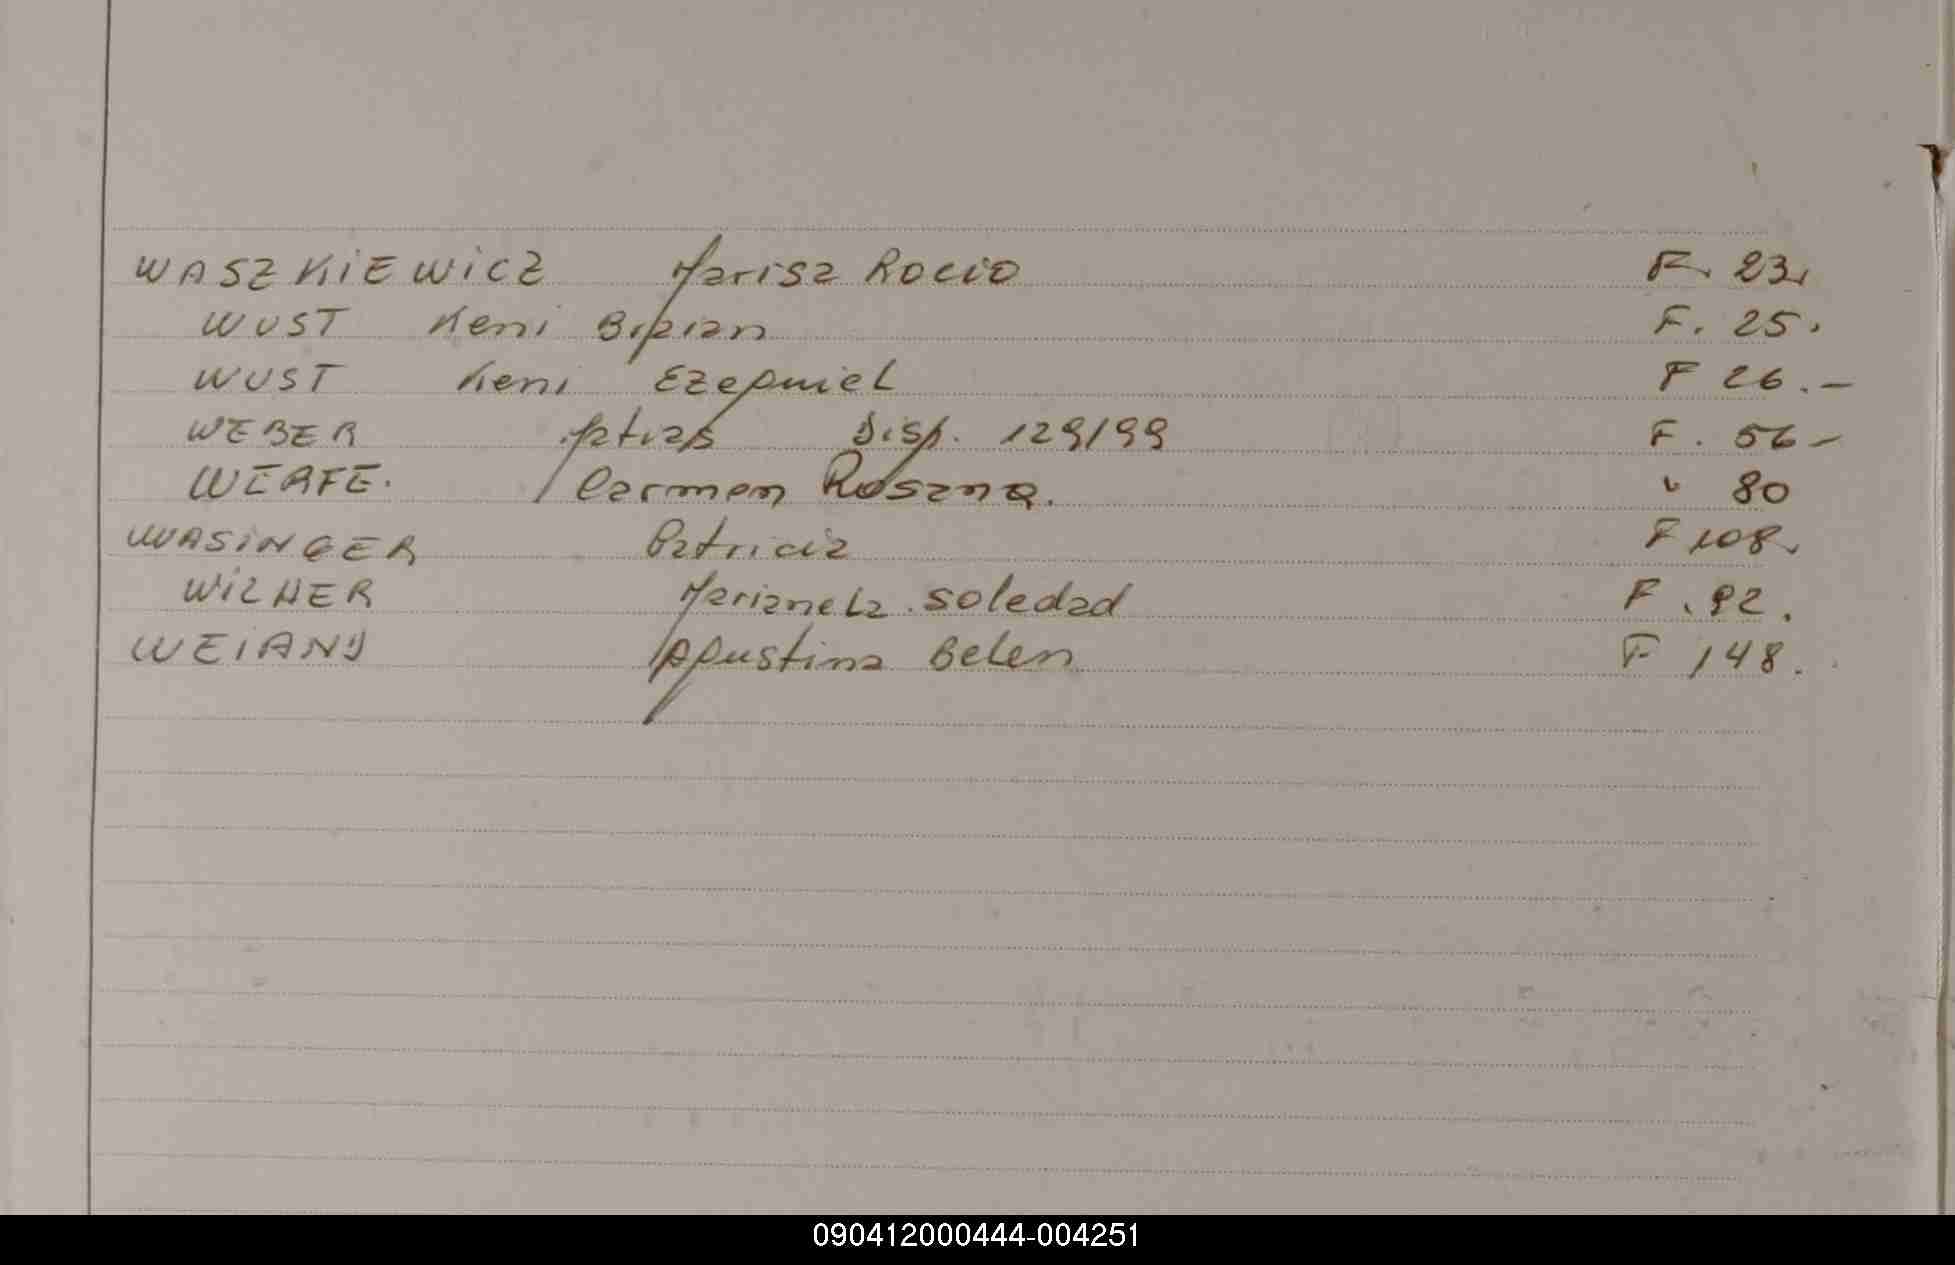 WASZKIEWICZ Marisa Rocio F. 23.
WUST Keni Brian F. 25.
WUST Keni Ezequiel F 26.-
WEBER Matias Disp. 129/99 F. 56-
WERFE. Carmen Rosana. " 80
WASINGER Patricia F 108.
WILNER Marianela Soledad F. 92.
Agustina Belen F 148.
090412000444-004251